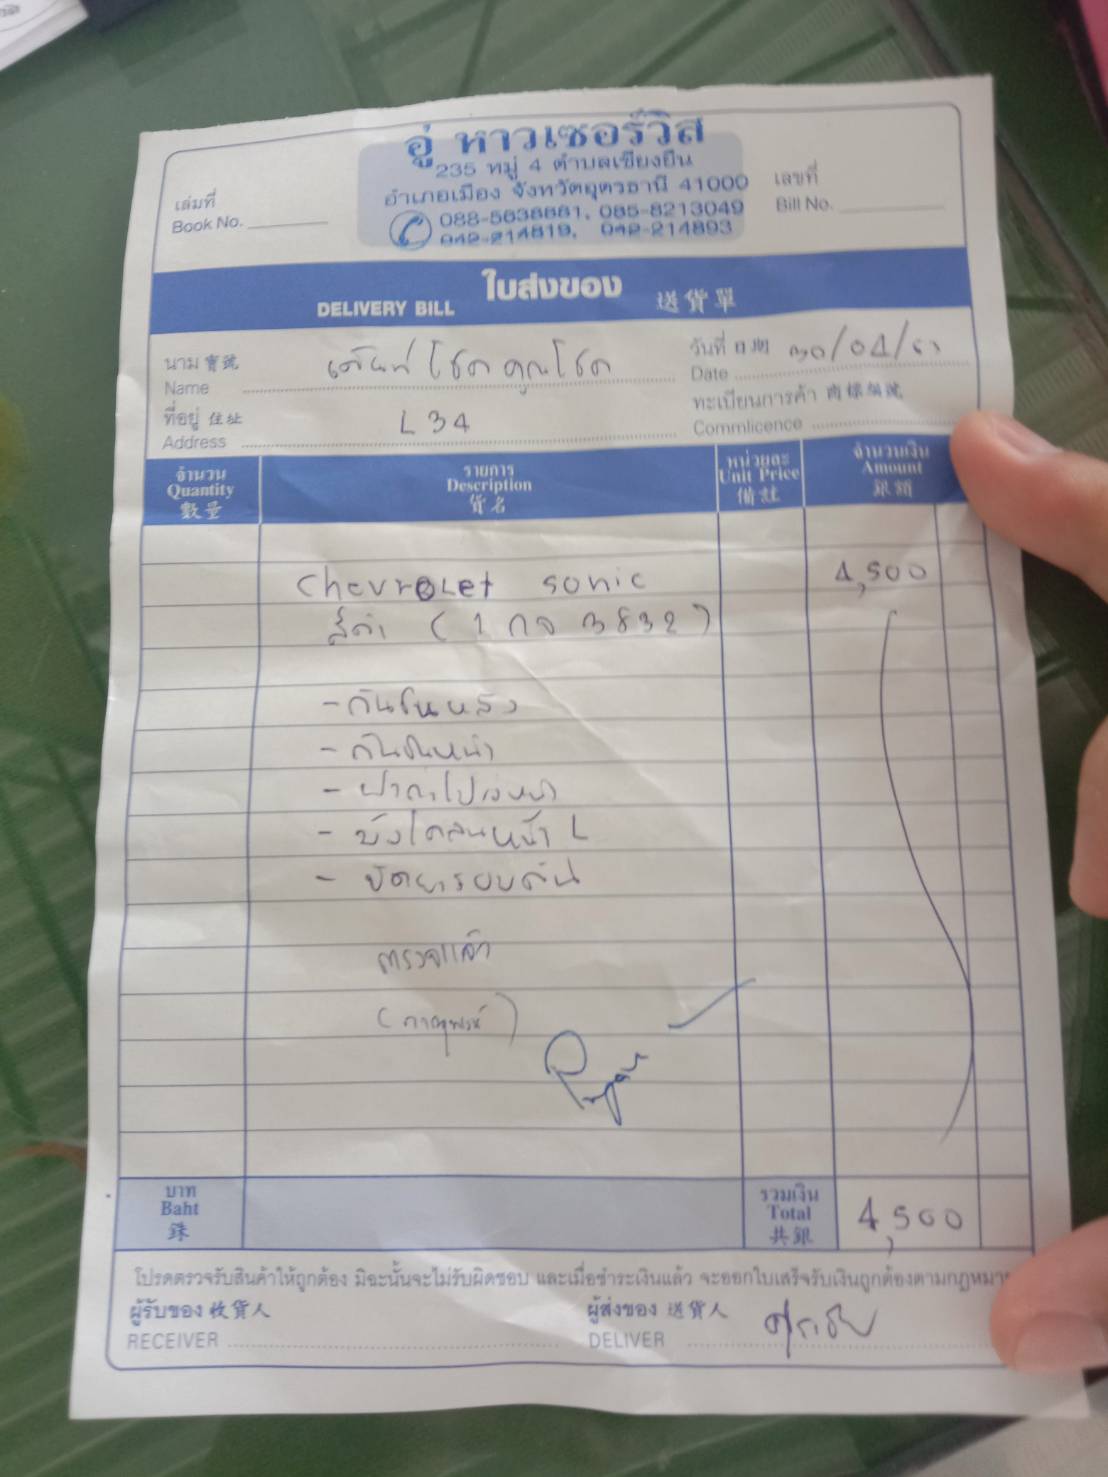 อู่ หาวเซอร์วิส
235 หมู่ 4 ตำบลเชียงยืน
อำเภอเมือง จังหวัดอุดรธานี 41000
085-8213049
042-214819, 042-214893
เล่มที่
Book No.
เลขที่
Bill No.
ใบส่งของ
DELIVERY BILL 送貨單
นาม 寶號 เต็นท์ โชค คูณโชค
Name
วันที่ 日期 30/04/
Date
ที่อยู่ 住址 L34
Address
ทะเบียนการค้า 商標編號
Commlicence
จำนวน รายการ หน่วยละ จำนวนเงิน
Quantity Description Unit Price Amount
數量 貨名 備註 銀額
Chevrolet sonic 4,500
สีดำ (1 กจ 3832)
- กันชนหลัง
- กันชนหน้า
- ฝากระโปรงหน้า
- บังโคลนหน้า L
- ขัดยารอบคัน
ตรวจแล้ว
บาท รวมเงิน
Baht Total 4,500
銖 共銀
โปรดตรวจรับสินค้าให้ถูกต้อง มิฉะนั้นจะไม่รับผิดชอบ และเมื่อชำระเงินแล้ว จะออกใบเสร็จรับเงินถูกต้องตามกฎหมาย
ผู้รับของ 收貨人
RECEIVER
ผู้ส่งของ 送貨人
DELIVER